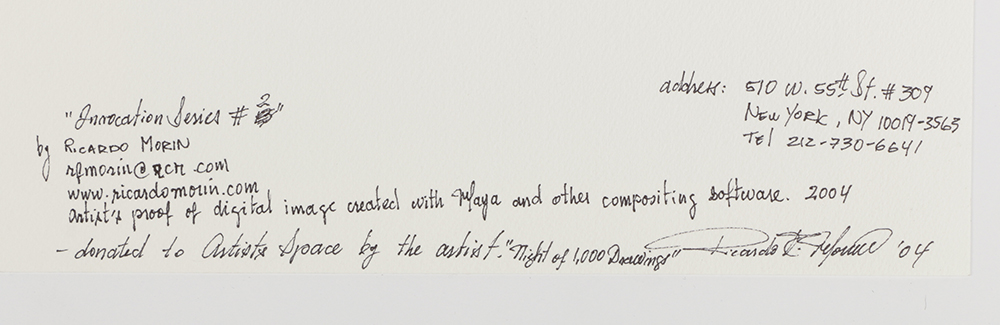 "Invocation Series # 2"
by RICARDO MORIN
rfmorin@rcn.com
www.ricardomorin.com
artist's proof of digital image created with Maya and other compositing software. 2004
- donated to Artists Space by the artist. "Night of 1,000 Drawings" Ricardo F. Morin '04
address: 510 W. 55th St. # 309
NEW YORK, NY 10019-3563
Tel 212-730-6641